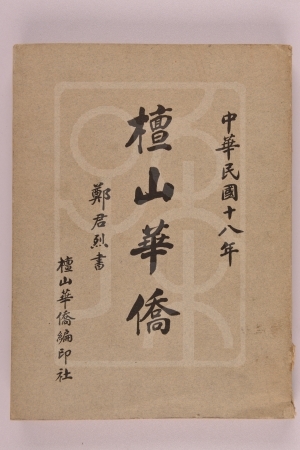 中華民國十八年
檀山華僑
鄭君烈書
檀山華僑編印社